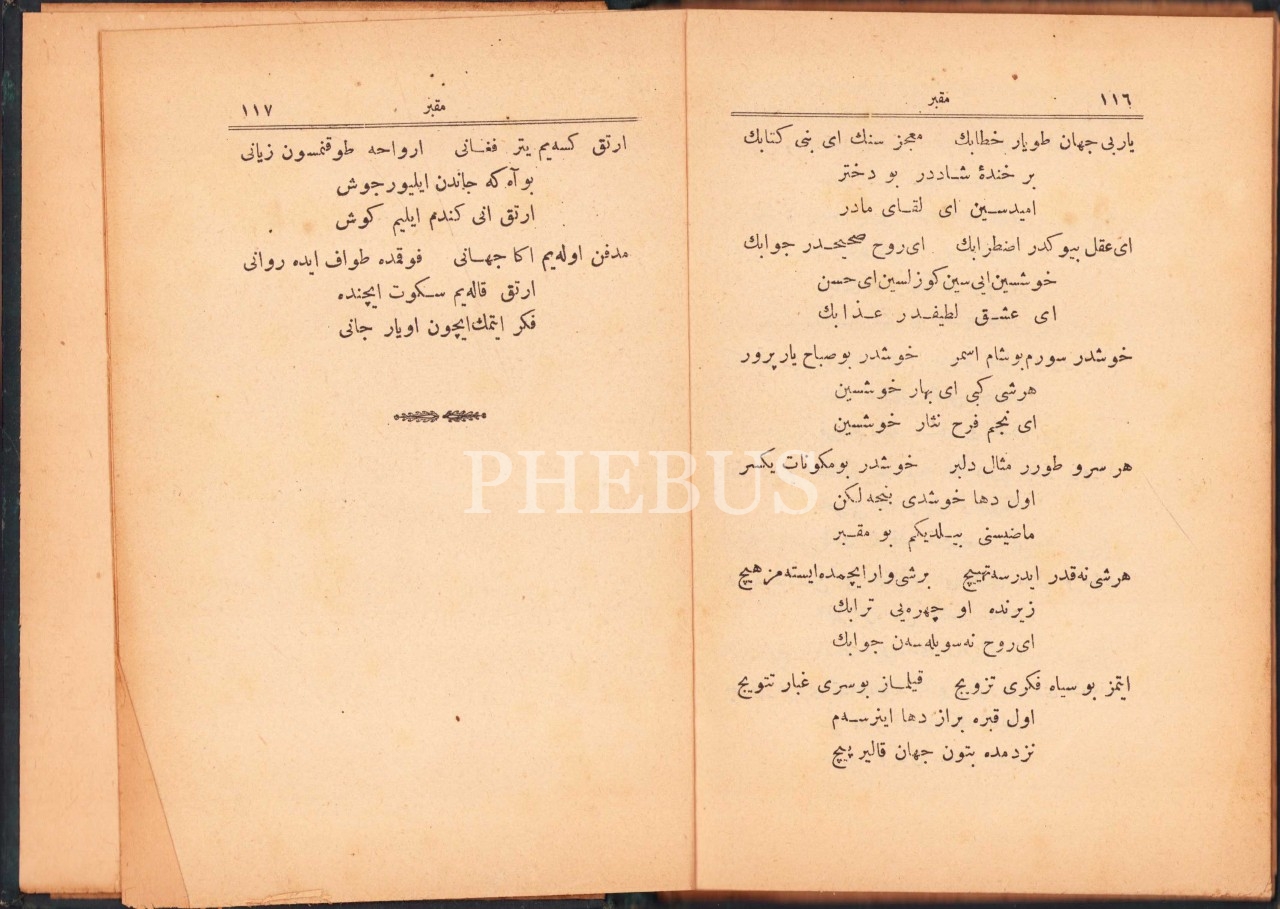 ١١٦
مقبر
ياربی جهان طويار خطابك معجز سنك ای بنی كتابك
بر خندهٔ شاددر بو دختر
اميدسين ای لقای مادر
ای عقل بيوكدر اضطرابك ای روح صحيحدر جوابك
خوشسين ايی سين كوزلسين ای حسن
ای عشق لطيفدر عذابك
خوشدر سورم بوشام اسمر خوشدر بو صباح يارپرور
هرشی كبی ای بهار خوشسين
ای نجم فرح نثار خوشسين
هر سرو طورر مثال دلبر خوشدر بو مكونات يكسر
اول دها خوشدی بنجه لكن
ماضيسنی بيلديكم بو مقبر
هرشی نه قدر ايدرسه تهييج برشی وار ايچمده ايسته مز هيچ
زيرنده او چهره يی ترابك
ای روح نه سويله سه ن جوابك
ايتمز بو سياه فكری تزويج قيلماز بو سری غبار تتويج
اول قبره براز دها اينرسه م
نزدمده بتون جهان قالير پيچ
١١٧
مقبر
ارتق كسه يم يتر فغانی ارواحه طوقنمسون زيانی
بو آه كه جاندن ايليور جوش
ارتق انی كندم ايليم كوش
مدفن اوله يم اكا جهانی فوقمده طواف ايده روانی
ارتق قاله يم سكوت ايچنده
فكر ايتمك ايچون اويار جانی
PHEBUS